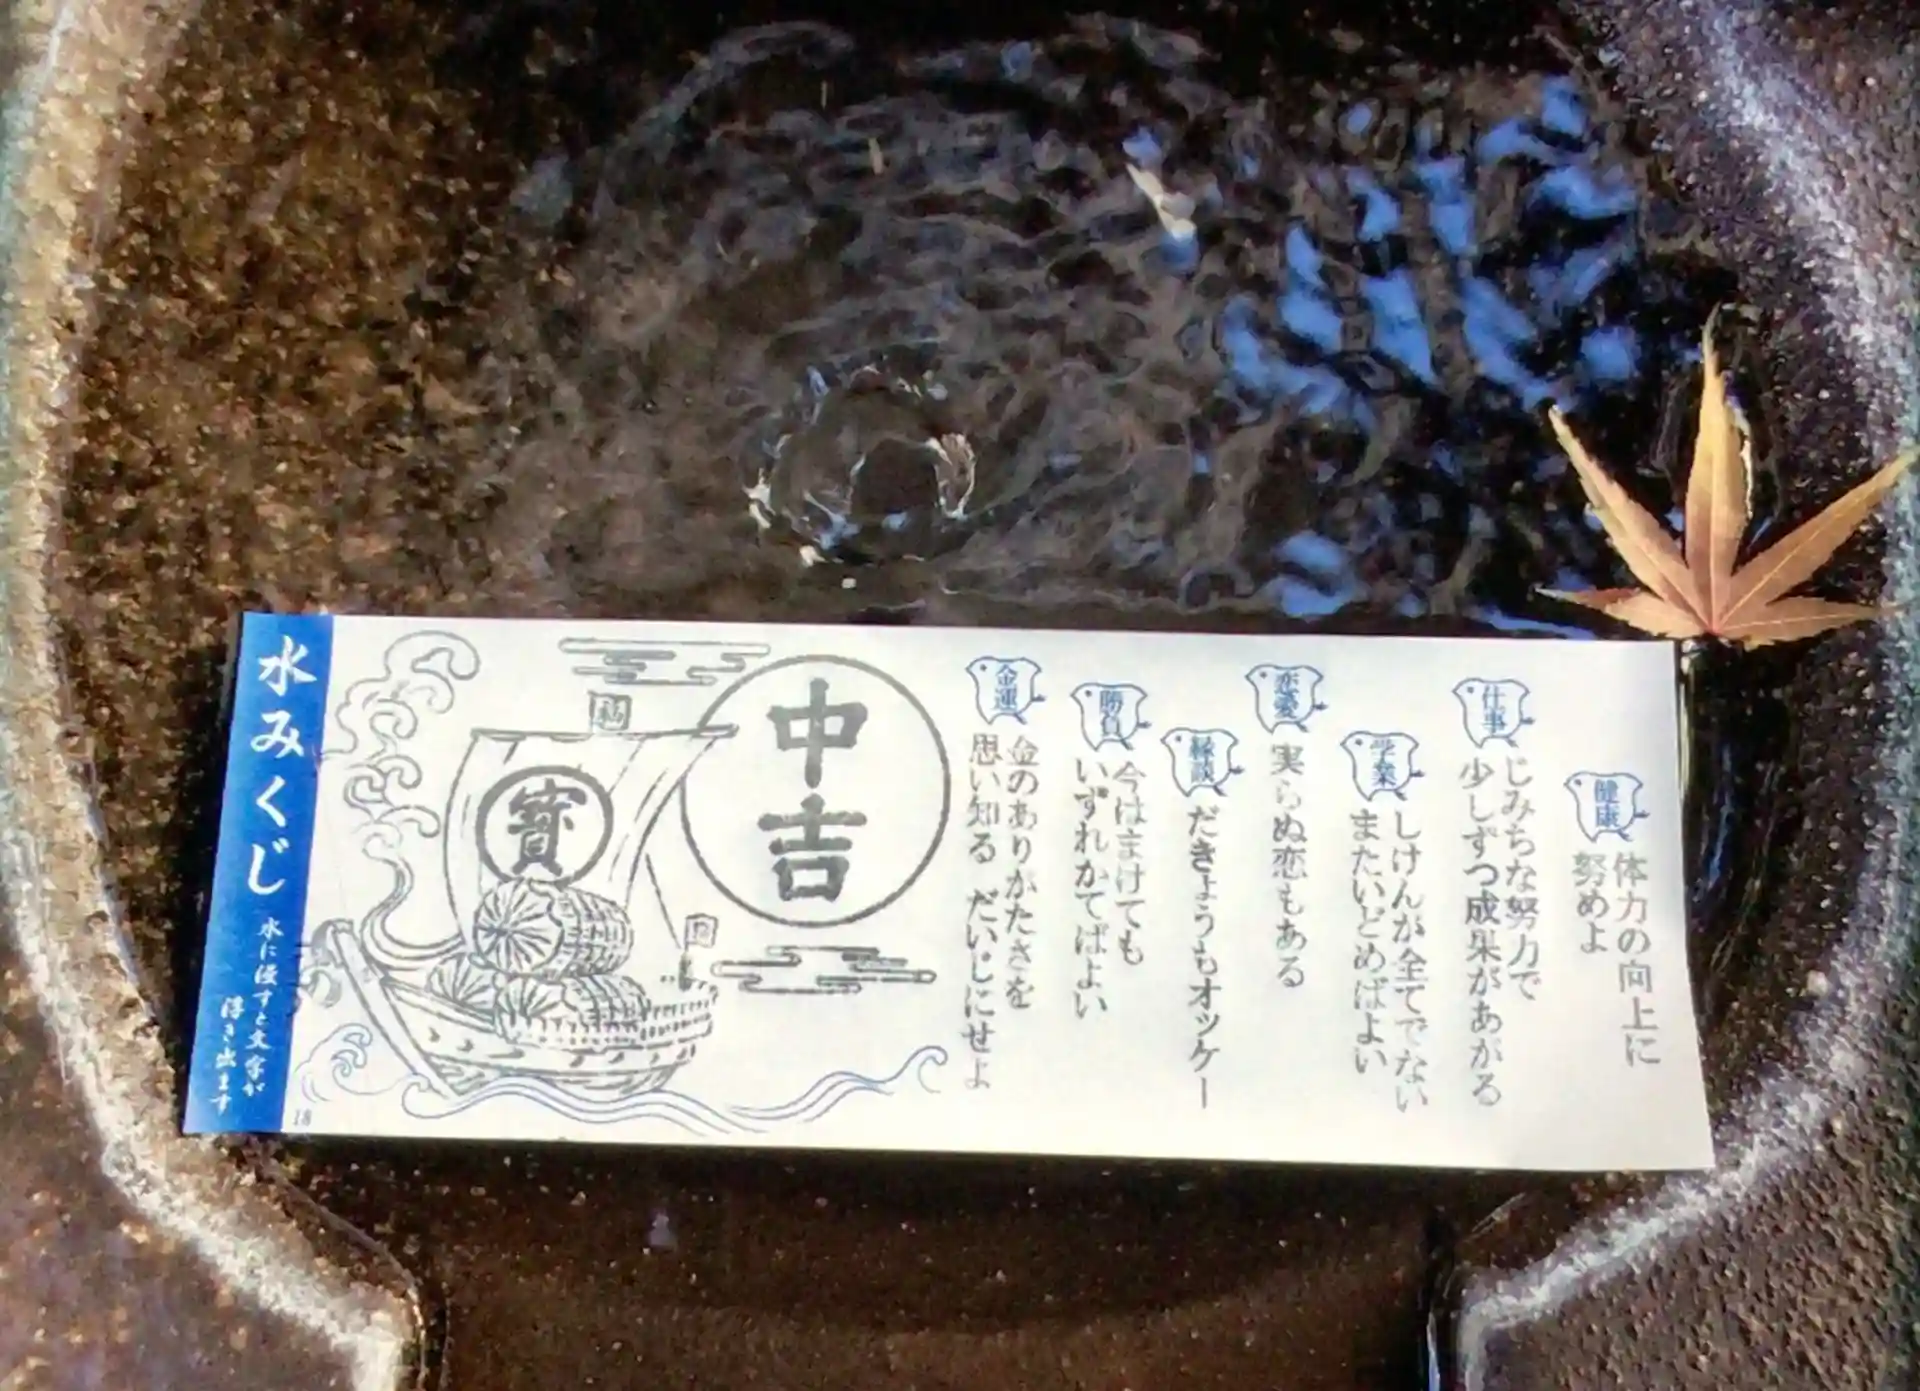 健康
体力の向上に
努めよ
仕事
じみちな努力で
少しずつ成果があがる
学業
しけんが全てでない
またいどめばよい
恋愛
実らぬ恋もある
縁談
だきょうもオッケー
勝負
今はまけても
いずれかてばよい
金運
金のありがたさを
思い知る だいじにせよ
中吉
寶
水みくじ
水に浸すと文字が
浮き出ます
18